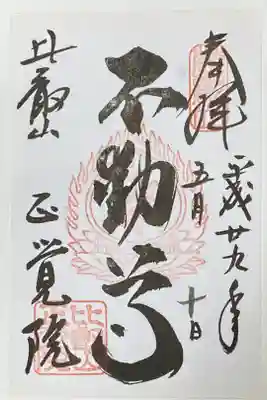 奉拝
平成廿九年
五月十日
不動尊
比叡山
正覚院